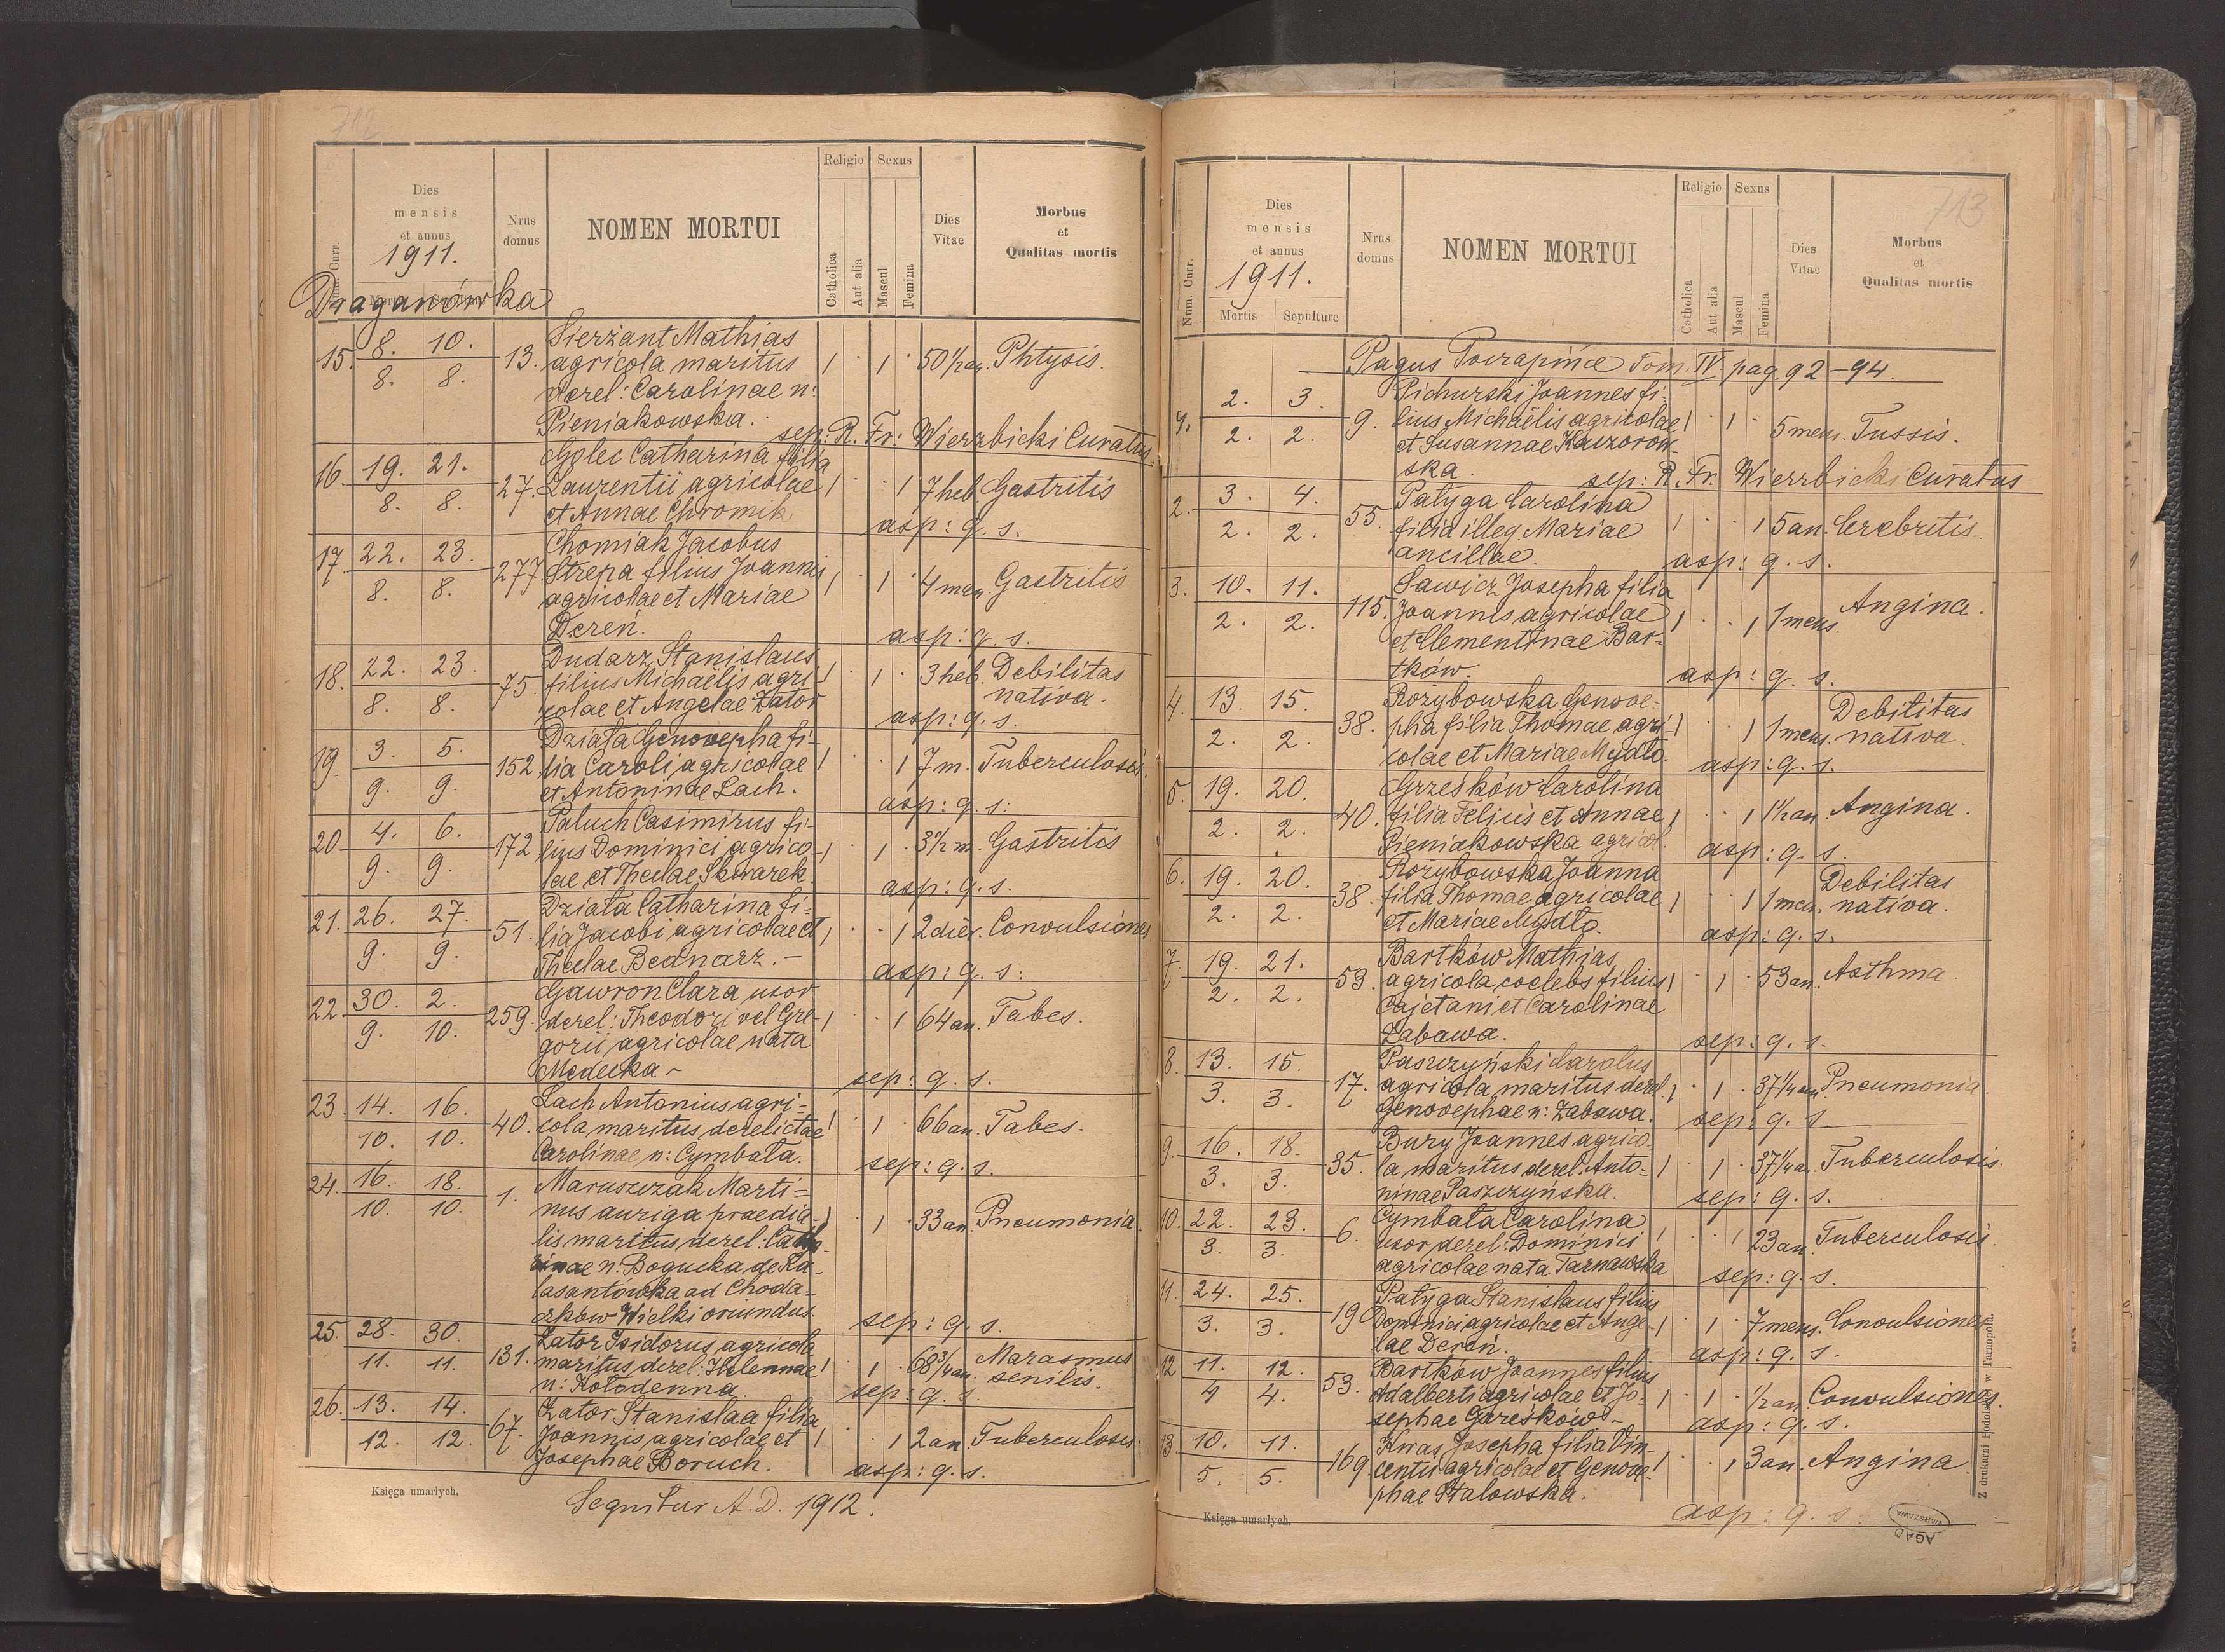 712
Num. Curr.
Dies
mensis
et annus
1911.
Nrus
domus
NOMEN MORTUI
Religio
Catholica
Aut alia
Sexus
Mascul
Femina
Dies
Vitae
Morbus
et
Qualitas mortis
Draganówka
15. 8. 10. 13. Sierżant Mathias
8. 8. agricola maritus 1 1 50½ an. Phtysis.
derel: Carolinae n:
Pieniakowska.
sep: R. Fr: Wierzbicki Curatus
16. 19. 21. 27. Golec Catharina filia
8. 8. Laurentii agricolae 1 1 7 heb. Gastritis
et Annae Chromik
asp: q. s.
17. 22. 23. 277. Chomiak Jacobus
8. 8. Strepa filius Joannis 1 1 4 men. Gastritis
agricolae et Mariae
Dereń.
asp: q. s.
18. 22. 23. 75. Dudarz Stanislaus
8. 8. filius Michaëlis agri- 1 1 3 heb. Debilitas
colae et Angelae Zator nativa.
asp: q. s.
19. 3. 5. 152 Działa Genovepha fi-
9. 9. lia Caroli agricolae 1 1 7 m. Tuberculosis.
et Antoninae Lach.
asp: q. s:
20. 4. 6. 172 Paluch Casimirus fi-
9. 9. lius Dominici agrico- 1 1 3½ m. Gastritis
lae et Theclae Skwarek
asp: q. s.
21. 26. 27. 51. Działa Catharina fi-
9. 9. lia Jacobi agricolae et 1 1 2 dies. Convulsiones
Theclae Bednarz. -
asp: q. s:
22. 30. 2. 259. Gawron Clara uxor
9. 10. derel: Theodori vel Gre- 1 1 64 an. Tabes.
gorii agricolae nata
Medecka -
sep: q. s.
23. 14. 16. 40. Lach Antonius agri-
10. 10. cola maritus derelictae 1 1 66 an. Tabes.
Carolinae n: Cymbała.
sep: q. s.
24. 16. 18. 1. Maruszczak Marti-
10. 10. nus auriga praedia- 1 1 33 an. Pneumonia.
lis maritus derel: Catha-
rinae n: Bogucka de Ka-
lasantówka ad Choda-
czków Wielki oriundus.
sep: q. s.
25. 28. 30. 131. Zator Isidorus agricola
11. 11. maritus derel: Helennae 1 1 68¾ an. Marasmus
n: Kołodenna. senilis.
sep: q. s.
26. 13. 14. 67. Zator Stanislaa filia
12. 12. Joannis agricolae et 1 1 2 an. Tuberculosis.
Josephae Boruch.
asp: q. s.
Księga umarłych.
Seguitur A. D. 1912.
713
Num. Curr
Dies
mensis
et annus
1911.
Mortis
Sepulture
Nrus
domus
NOMEN MORTUI
Religio
Catholica
Aut alia
Sexus
Mascul
Femina
Dies
Vitae
Morbus
et
Qualitas mortis
Pagus Poczapińce Tom. IV. pag. 92-94.
1. 2. 3. 9. Pichurski Joannes fi-
2. 2. lius Michaëlis agricolae 1 1 5 mens. Tussis.
et Susannae Kaczorow-
ska.
sep: R. Fr. Wierzbicki Curatus
2. 3. 4. 55. Patyga Carolina
2. 2. filia illeg. Mariae 1 1 5 an. Cerebritis.
ancillae.
asp: q. s.
3. 10. 11. 115. Sawicz Josepha filia
2. 2. Joannis agricolae 1 1 1 mens. Angina.
et Clementinae Bar-
tków.
asp: q. s.
4. 13. 15. 38. Rożybowska Genove-
2. 2. pha filia Thomae agri- 1 1 1 mens. Debilitas
colae et Mariae Mydło. nativa.
asp: q. s.
5. 19. 20. 40. Grześków Carolina
2. 2. filia Felicis et Annae 1 1 1½ an Angina.
Pieniakowska agricol.
asp: q. s.
6. 19. 20. 38. Rożybowska Joanna
2. 2. filia Thomae agricolae 1 1 1 men. Debilitas
et Mariae Mydło. nativa.
asp: q. s.
7. 19. 21. 59. Bartków Mathias
2. 2. agricola coelebs filius 1 1 53 an. Asthma.
Cajetani et Carolinae
Zabawa.
sep: q. s.
8. 13. 15. 17. Paszczyński Carolus
3. 3. agricola maritus derel. 1 1 37¼ an. Pneumonia
Genovephae n: Zabawa.
sep: q. s.
9. 16. 18. 35. Bury Joannes agrico-
3. 3. la maritus derel: Anto- 1 1 37¼ a. Tuberculosis.
ninae Paszczyńska.
sep: q. s.
10. 22. 23. 6. Cymbała Carolina
3. 3. uxor derel: Dominici 1 1 23 an. Tuberculosis.
agricolae nata Tarnawska
sep: q. s.
11. 24. 25. 19 Patyga Stanislaus filius
3. 3. Dominici agricolae et Ange- 1 1 7 mens. Convulsiones
lae Dereń.
asp: q. s.
12 11. 12. 53. Bartków Joannes filius
4 4. Adalberti agricolae et Jo- 1 1 ½ an. Convulsiones.
sephae Gareśków -
asp: q. s.
13. 10. 11. 169. Kwas Josepha filia Vin-
5. 5. centii agricolae et Genove- 1 1 3 an. Angina
phae Stalowska.
asp: q. s.
Księga umarłych.
AGAD
WARSZAWA
Z drukarni Podolskiej w Tarnopolu.